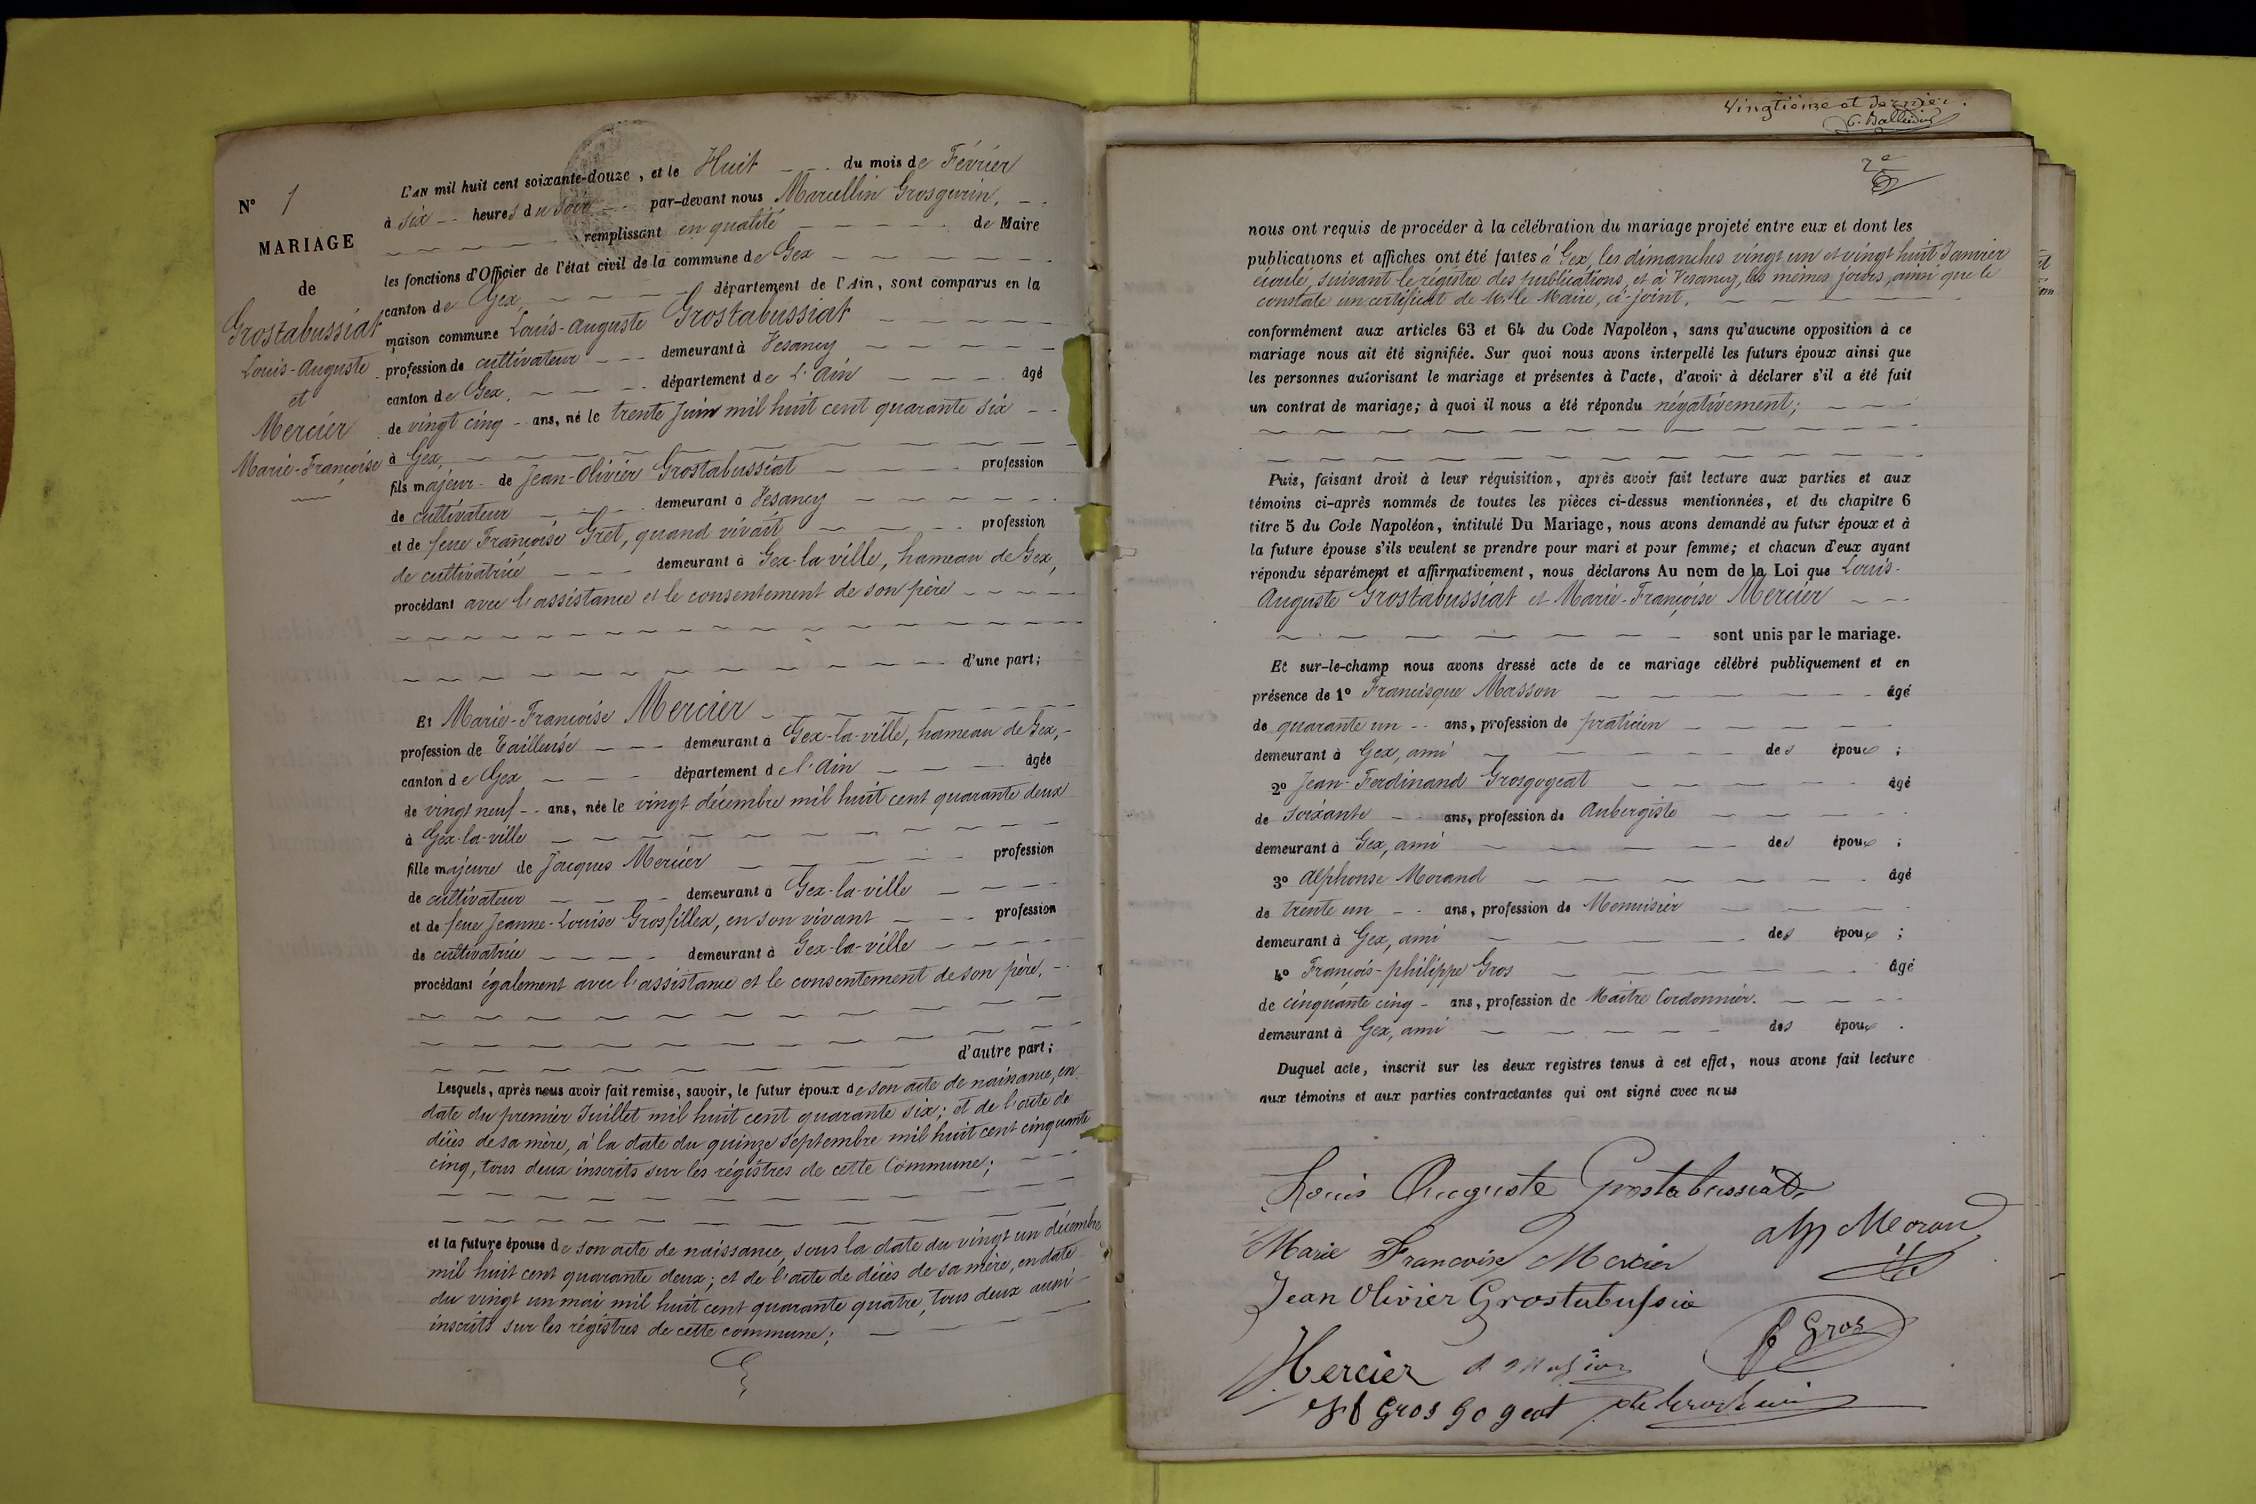 N° 1
MARIAGE
de
Grostabussiat
Louis-Auguste
et
Mercier
Marie-Françoise
L'AN mil huit cent soixante-douze, et le Huit du mois de Février
à six heures du soir par-devant nous Marcellin Grosgurin,
remplissant en qualité de Maire
les fonctions d'Officier de l'état civil de la commune de Gex
canton de Gex, département de l'Ain, sont comparus en la
maison commune Louis-Auguste Grostabussiat
profession de cultivateur demeurant à Vesancy
canton de Gex, département de L'Ain âgé
de vingt cinq ans, né le trente Juin mil huit cent quarante six
à Gex,
fils majeur de Jean-Olivier Grostabussiat profession
de cultivateur demeurant à Vesancy
et de feue Françoise Gret, quand vivait profession
de cultivatrice demeurant à Gex-la-ville, hameau de Gex,
procédant avec l'assistance et le consentement de son père
d'une part;
Et Marie-Françoise Mercier
profession de Tailleuse demeurant à Gex-la-ville, hameau de Gex,
canton de Gex département de l'Ain âgée
de vingt neuf ans, née le vingt décembre mil huit cent quarante deux
à Gex-la-ville
fille majeure de Jacques Mercier profession
de cultivateur demeurant à Gex-la-ville
et de feue Jeanne-Louise Grosfillex, en son vivant profession
de cultivatrice demeurant à Gex-la-ville
procédant également avec l'assistance et le consentement de son père,
d'autre part;
Lesquels, après nous avoir fait remise, savoir, le futur époux de son acte de naissance, en
date du premier Juillet mil huit cent quarante six; et de l'acte de
décès de sa mère, à la date du quinze Septembre mil huit cent cinquante
cinq, tous deux inscrits sur les régistres de cette Commune;
et la future épouse de son acte de naissance, sous la date du vingt un décembre
mil huit cent quarante deux; et de l'acte de décès de sa mère, en date
du vingt un mai mil huit cent quarante quatre, tous deux aussi
inscrits sur les régistres de cette commune;
Vingtième et dernier.
2e
nous ont requis de procéder à la célébration du mariage projeté entre eux et dont les
publications et affiches ont été faites à Gex, les dimanches vingt un et vingt huit Janvier
écoulé, suivant le régistre des publications, et à Vesancy, les mêmes jours, ainsi que le
constate un certificat de Mr le Maire, ci-joint,
conformément aux articles 63 et 64 du Code Napoléon, sans qu'aucune opposition à ce
mariage nous ait été signifiée. Sur quoi nous avons interpellé les futurs époux ainsi que
les personnes autorisant le mariage et présentes à l'acte, d'avoir à déclarer s'il a été fait
un contrat de mariage; à quoi il nous a été répondu négativement;
Puis, faisant droit à leur réquisition, après avoir fait lecture aux parties et aux
témoins ci-après nommés de toutes les pièces ci-dessus mentionnées, et du chapitre 6
titre 5 du Code Napoléon, intitulé Du Mariage, nous avons demandé au futur époux et à
la future épouse s'ils veulent se prendre pour mari et pour femme; et chacun d'eux ayant
répondu séparément et affirmativement, nous déclarons Au nom de la Loi que Louis-
Auguste Grostabussiat et Marie-Françoise Mercier
sont unis par le mariage.
Et sur-le-champ nous avons dressé acte de ce mariage célébré publiquement et en
présence de 1° Francisque Masson âgé
de quarante un ans, profession de praticien
demeurant à Gex, ami des époux;
2° Jean-Ferdinand Grosgogeat âgé
de soixante ans, profession de Aubergiste
demeurant à Gex, ami des époux;
3° Alphonse Morand âgé
de trente un ans, profession de Menuisier
demeurant à Gex, ami des époux;
4° François-philippe Gros âgé
de cinquante cinq ans, profession de Maître Cordonnier.
demeurant à Gex, ami des époux.
Duquel acte, inscrit sur les deux registres tenus à cet effet, nous avons fait lecture
aux témoins et aux parties contractantes qui ont signé avec nous
Louis Auguste Grostabussiat
Marie Francoise Mercier
alp Morand
Jean Olivier Grostabussia
Gros
Mercier
Gros gogeat